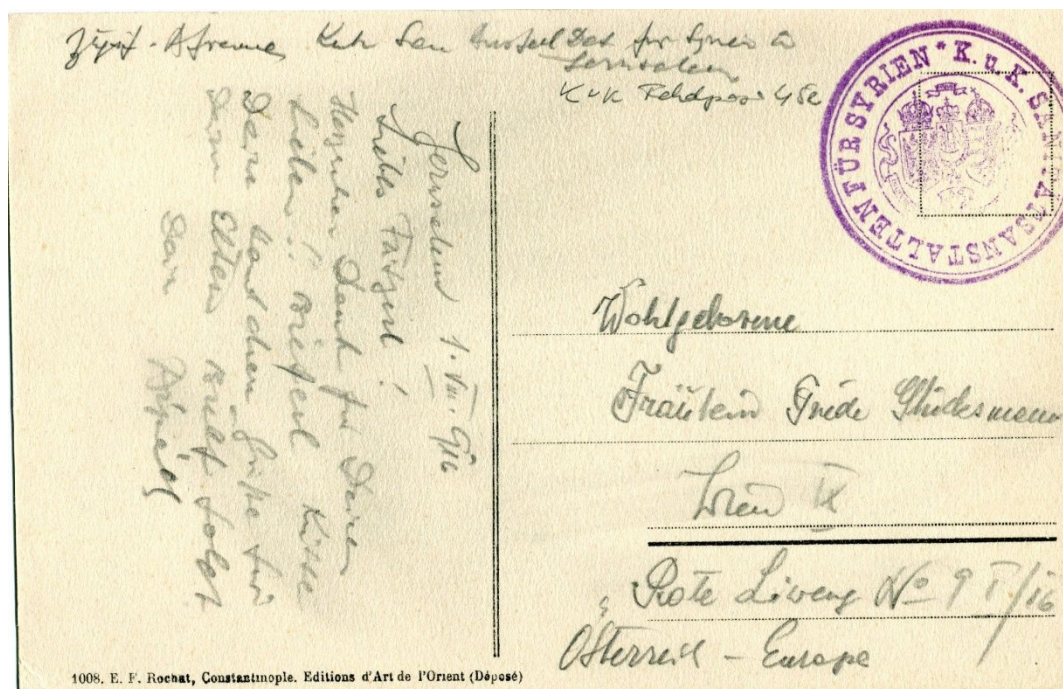 Adresse K u K San Anstalt für Syrien in
Jerusalem
K u K Feldpost 452
FÜR SYRIEN * K. u. K. SANITÄTSANSTALTEN
Jerusalem 1. VIII. 916
Liebes
Herzlichen Dank für Deinen
lieben Brieferl Küsse
Deine Handchen Grüsse für
Deine Eltern Brief folgt
Dein
Wohlgeborene
Fräulein Frieda Glücksmann
Wien IX
Rote Löweng No 9 I/16
Österreich - Europa
1008. E. F. Rochat, Constantinople. Editions d'Art de l'Orient (Déposé)